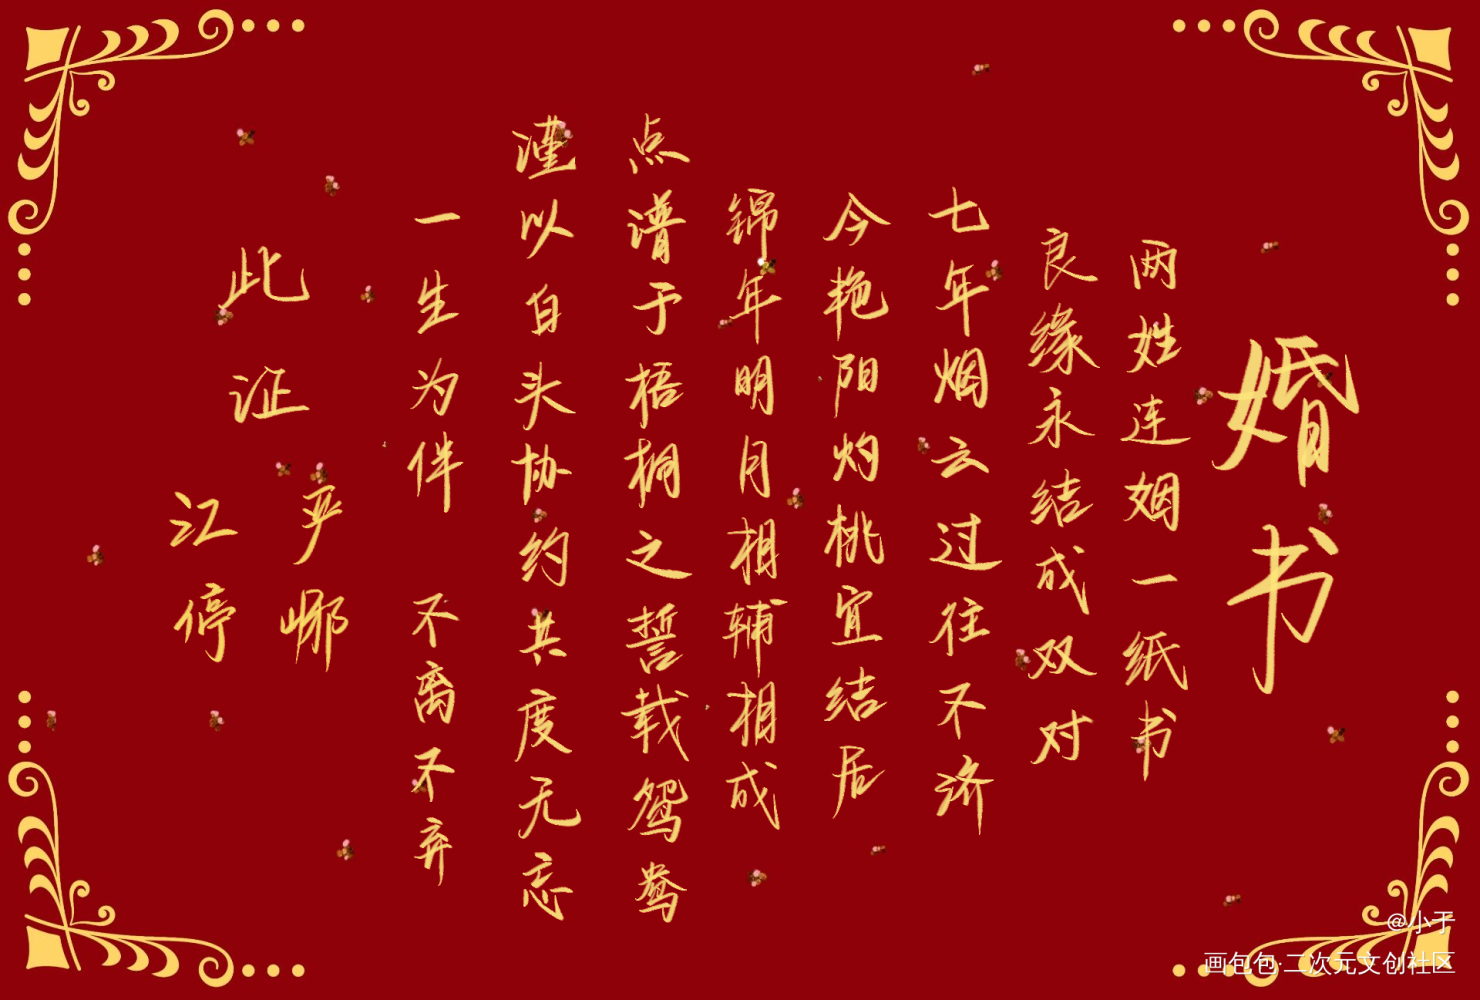 婚书
两姓连姻一纸书
良缘永结成双对
七年烟云过往不济
今艳阳灼桃宜结居
锦年明月相辅相成
点谱于梧桐之誓载鸳鸯
谨以白头协约共度无忘
一生为伴 不离不弃
此证
严哪
江停
@小于
画包包·二次元文创社区